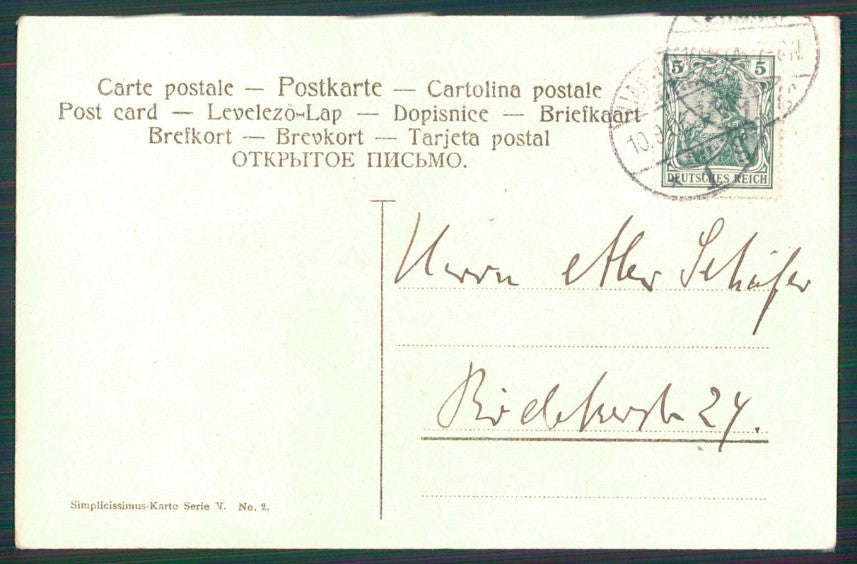 Carte postale — Postkarte — Cartolina postale
Post card — Levelezö-Lap — Dopisnice — Briefkaart
Brefkort — Brevkort — Tarjeta postal
ОТКРЫТОЕ ПИСЬМО.
5 5
DEUTSCHES REICH
Herrn Schäfer
24.
Simplicissimus-Karte Serie V. No. 2.